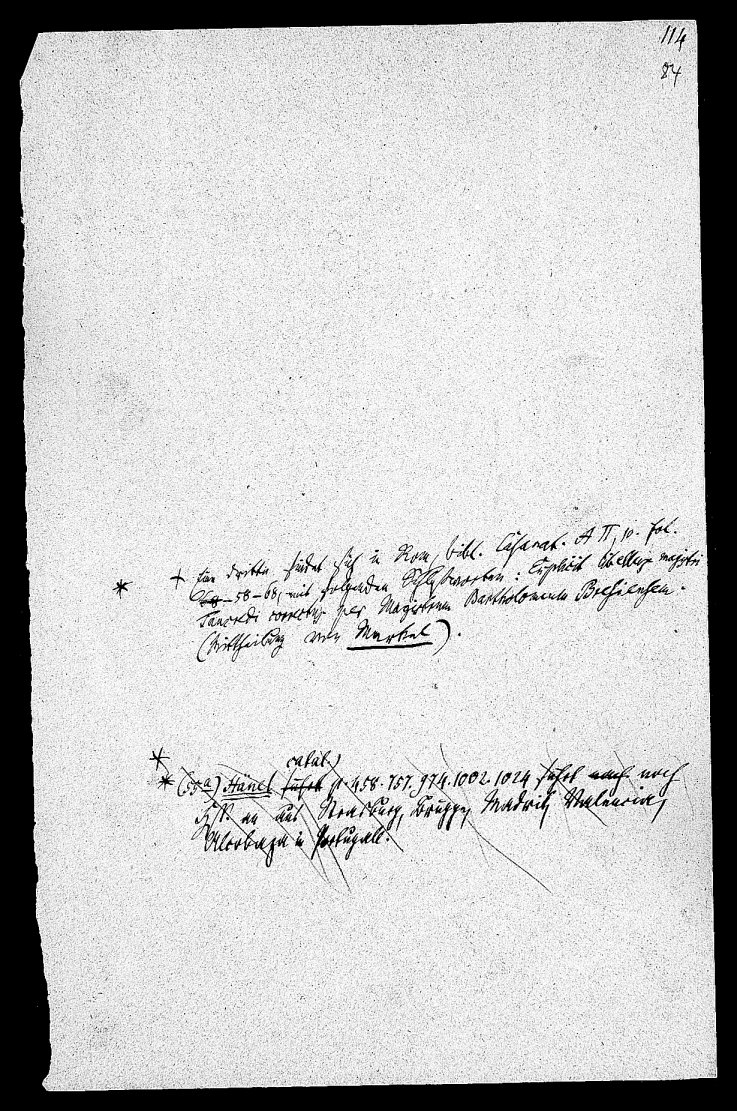 114
84
* + Eine dritte findet sich in Rom, bibl. Casanat. A II, 10. fol.
58–68, mit folgenden Schlußworten: Explicit libellus magistri
Tancredi correctus per Magistrum Bartholomeum Brexiensem.
(Mittheilung von Merkel).
*
catal.
* (55a) Hänel führt p. 458. 757. 974. 1002. 1024 führt auch noch
Hss. an aus Strasburg, Brügge, Madrid, Valencia,
Alcobaza in Portugall.